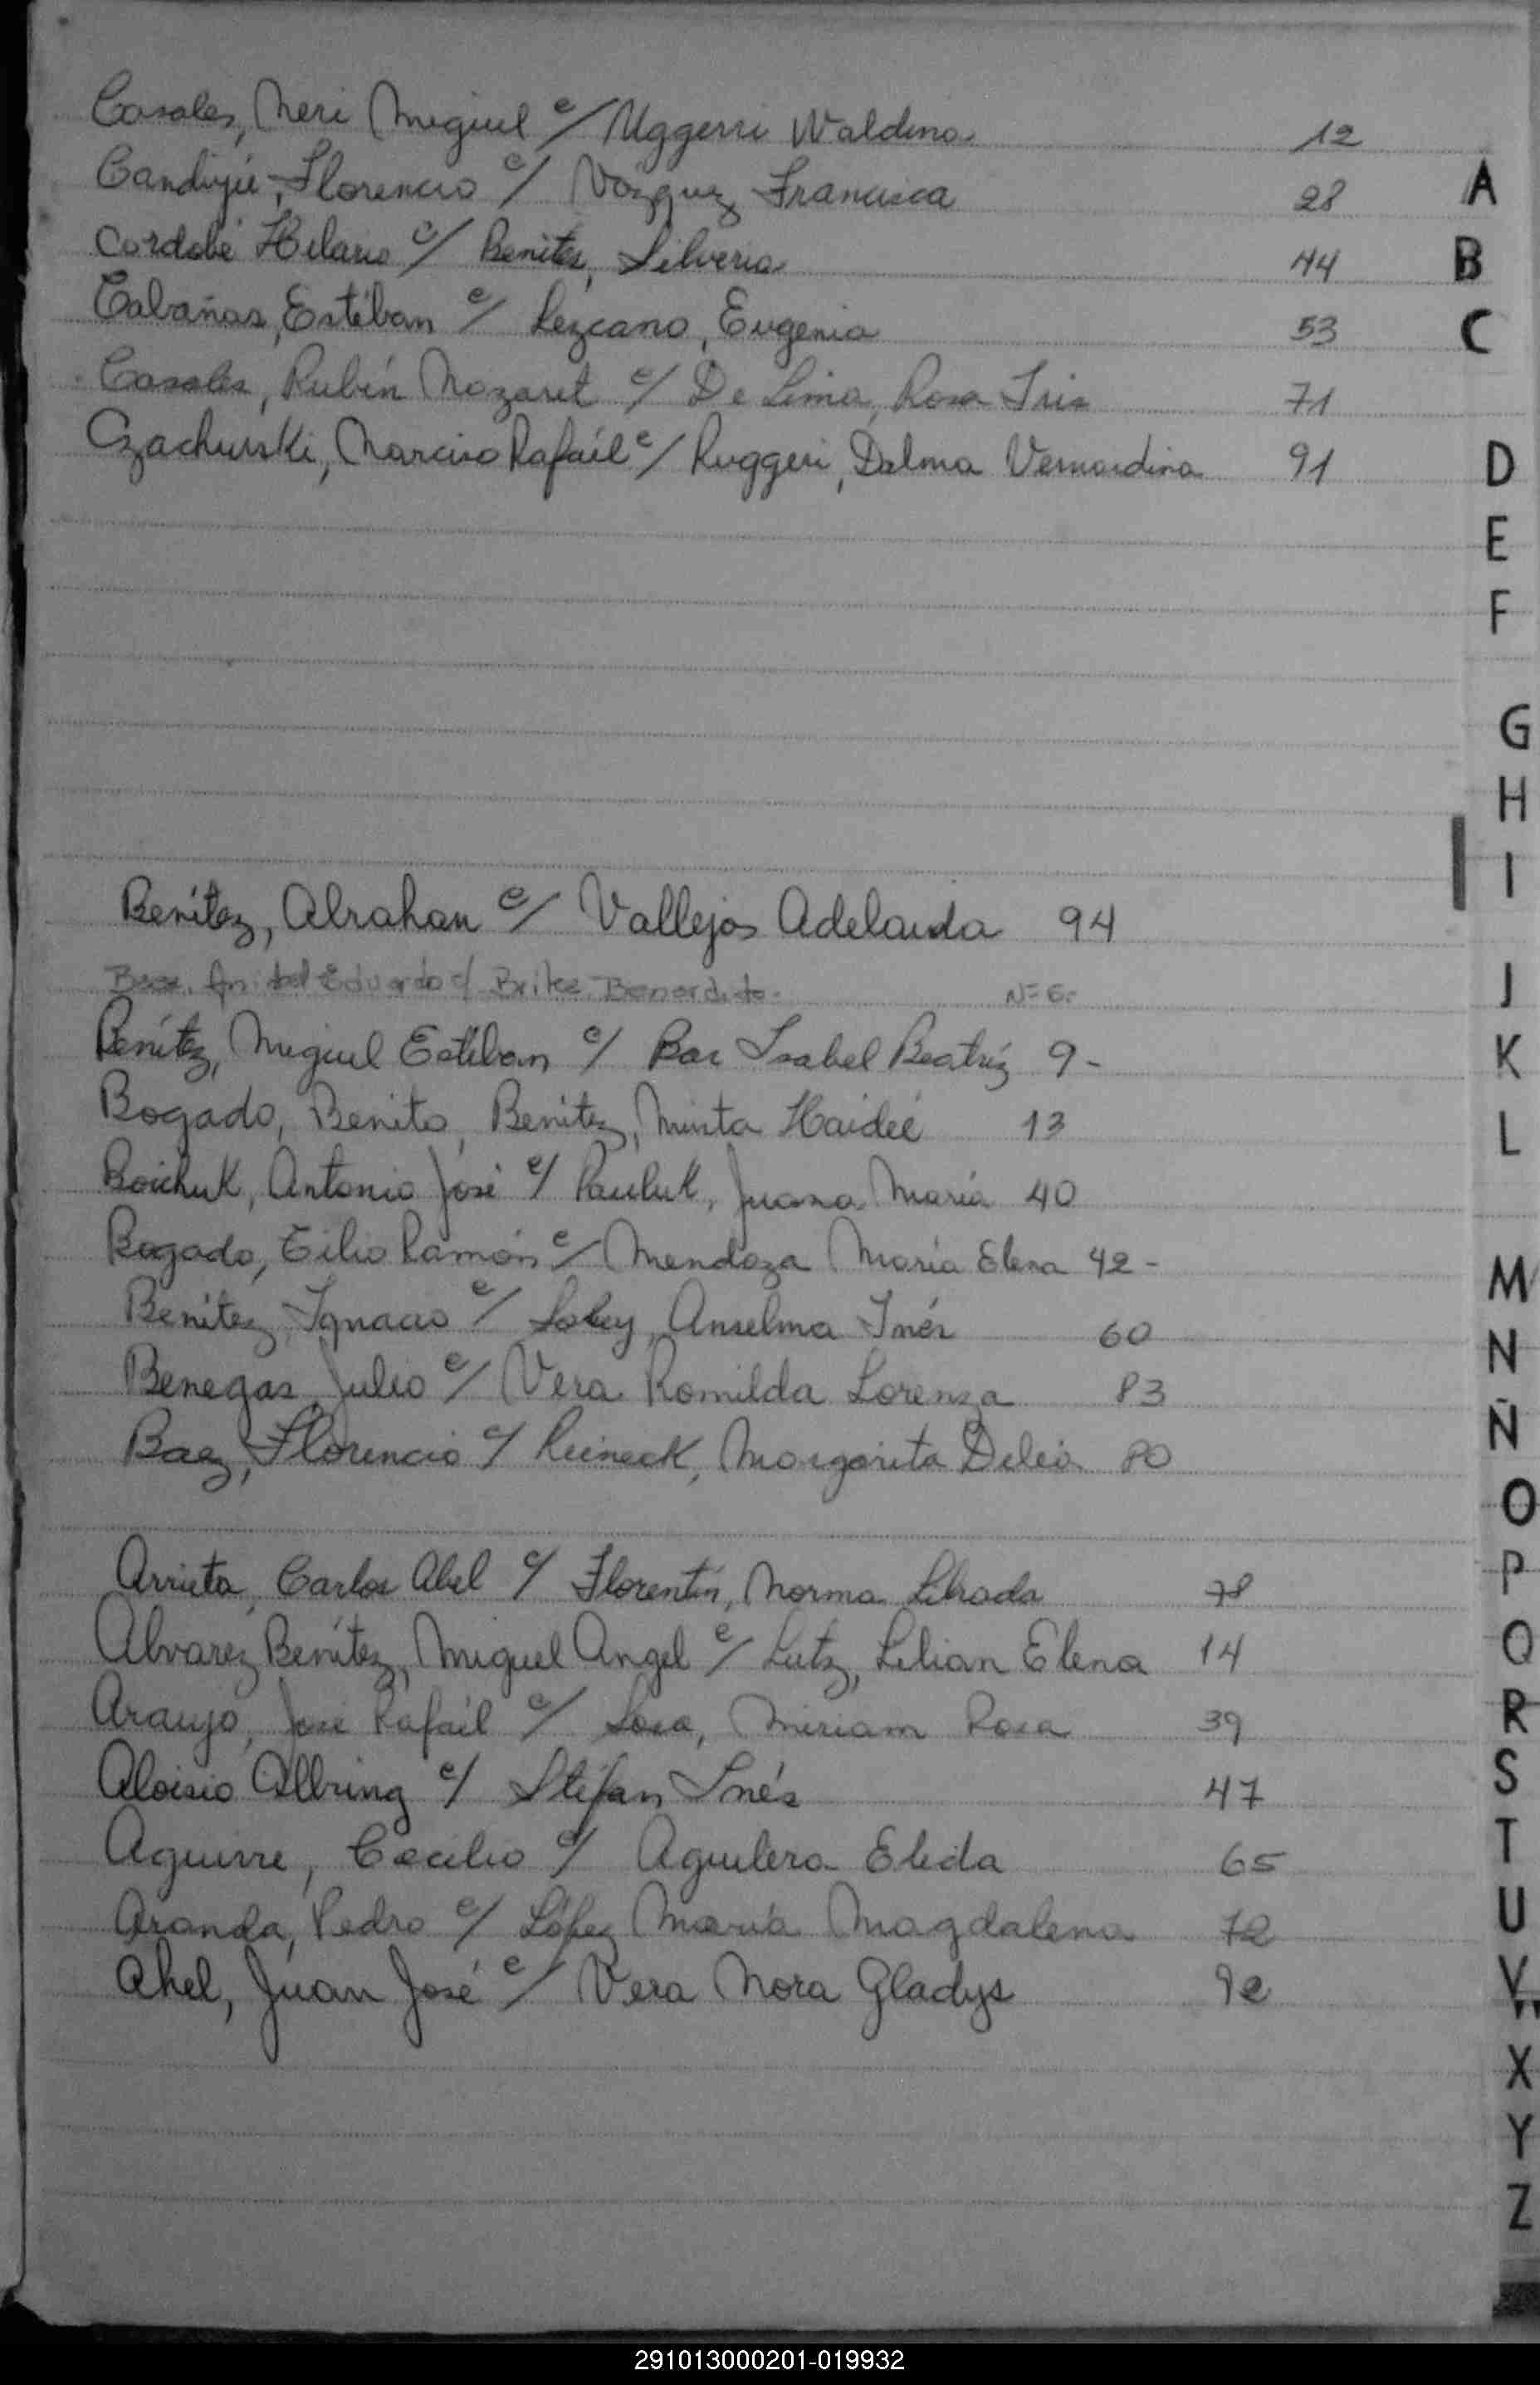 Casales, Neri Miguel c/ Uggerri Waldina 12
Candujié, Florencio c/ Vázquez Francisca 28
Cordobé Hilario c/ Benitez, Silveria 44
Cabañas, Estéban c/ Lezcano, Eugenia 53
Casales, Rubén Nazaret c/ De Lima, Rosa Iris 71
Czachurski, Narciso Rafaél c/ Ruggeri, Dalma Vernardina 91
Benítez, Abrahan c/ Vallejos Adelaida 94
Eduardo c/ Britez
Benítez, Miguel Estéban c/ Bar Isabel Beatríz 9-
Bogado, Benito, Benitez, Mirta Haideé 13
Boichuk, Antonio José c/ Pauluk, Juana María 40
Bogado, Eilio Ramón c/ Mendoza María Elena 42-
Benítez, Ignacio c/ Anselma Inés 60
Benegas, Julio c/ Vera Romilda Lorenza 83
Baez, Florencio c/ Reineck, Margarita Delia 80
Arrieta, Carlos Abel c/ Florentín, Norma Librada 78
Alvarez Benítez, Miguel Angel c/ Lutz, Lilian Elena 14
Araujo, José Rafaél c/ Sosa, Miriam Rosa 39
Aloisio Albring c/ Stéfan Inés 47
Aguirre, Cecilio c/ Aguilera Elida 65
Aranda, Pedro c/ López María Magdalena 72
Ahel, Juan José c/ Vera Nora Gladys 92
A
B
C
D
E
F
G
H
I
J
K
L
M
N
Ñ
O
P
Q
R
S
T
U
V
X
Y
Z
291013000201-019932